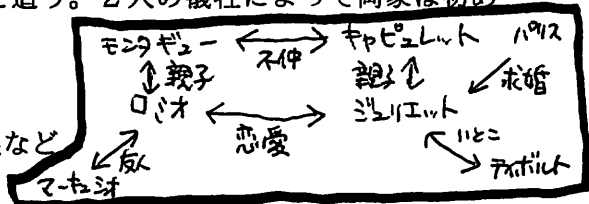 を追う。2人の犠牲によって両家は初め
モンタギュー ⟷ キャピュレット パリス
不仲
親子 親子 求婚
ロミオ ⟷ ジュリエット
など 恋愛 いとこ
友人
マーキュシオ ティボルト